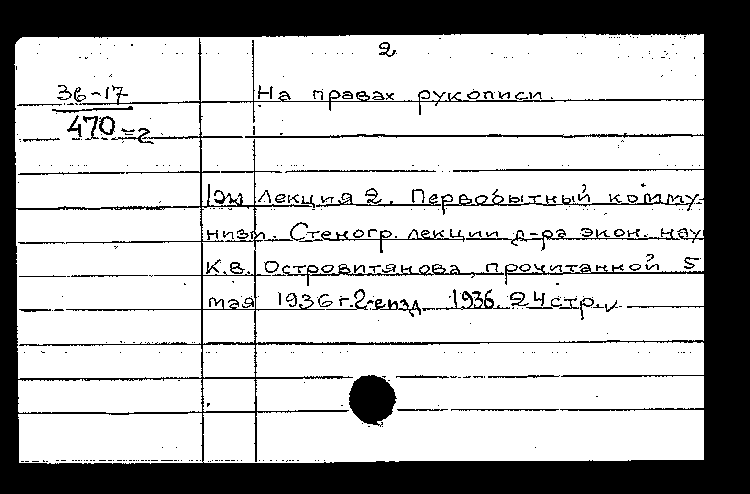 2
36-17
470=2
На правах рукописи.
1эк Лекция 2. Первобытный комму-
низм. Стеногр. лекции д-ра экон. нау
К.В. Островитянова, прочитанной 5
мая 1936 г. 2-е изд. 1936. 24 стр.